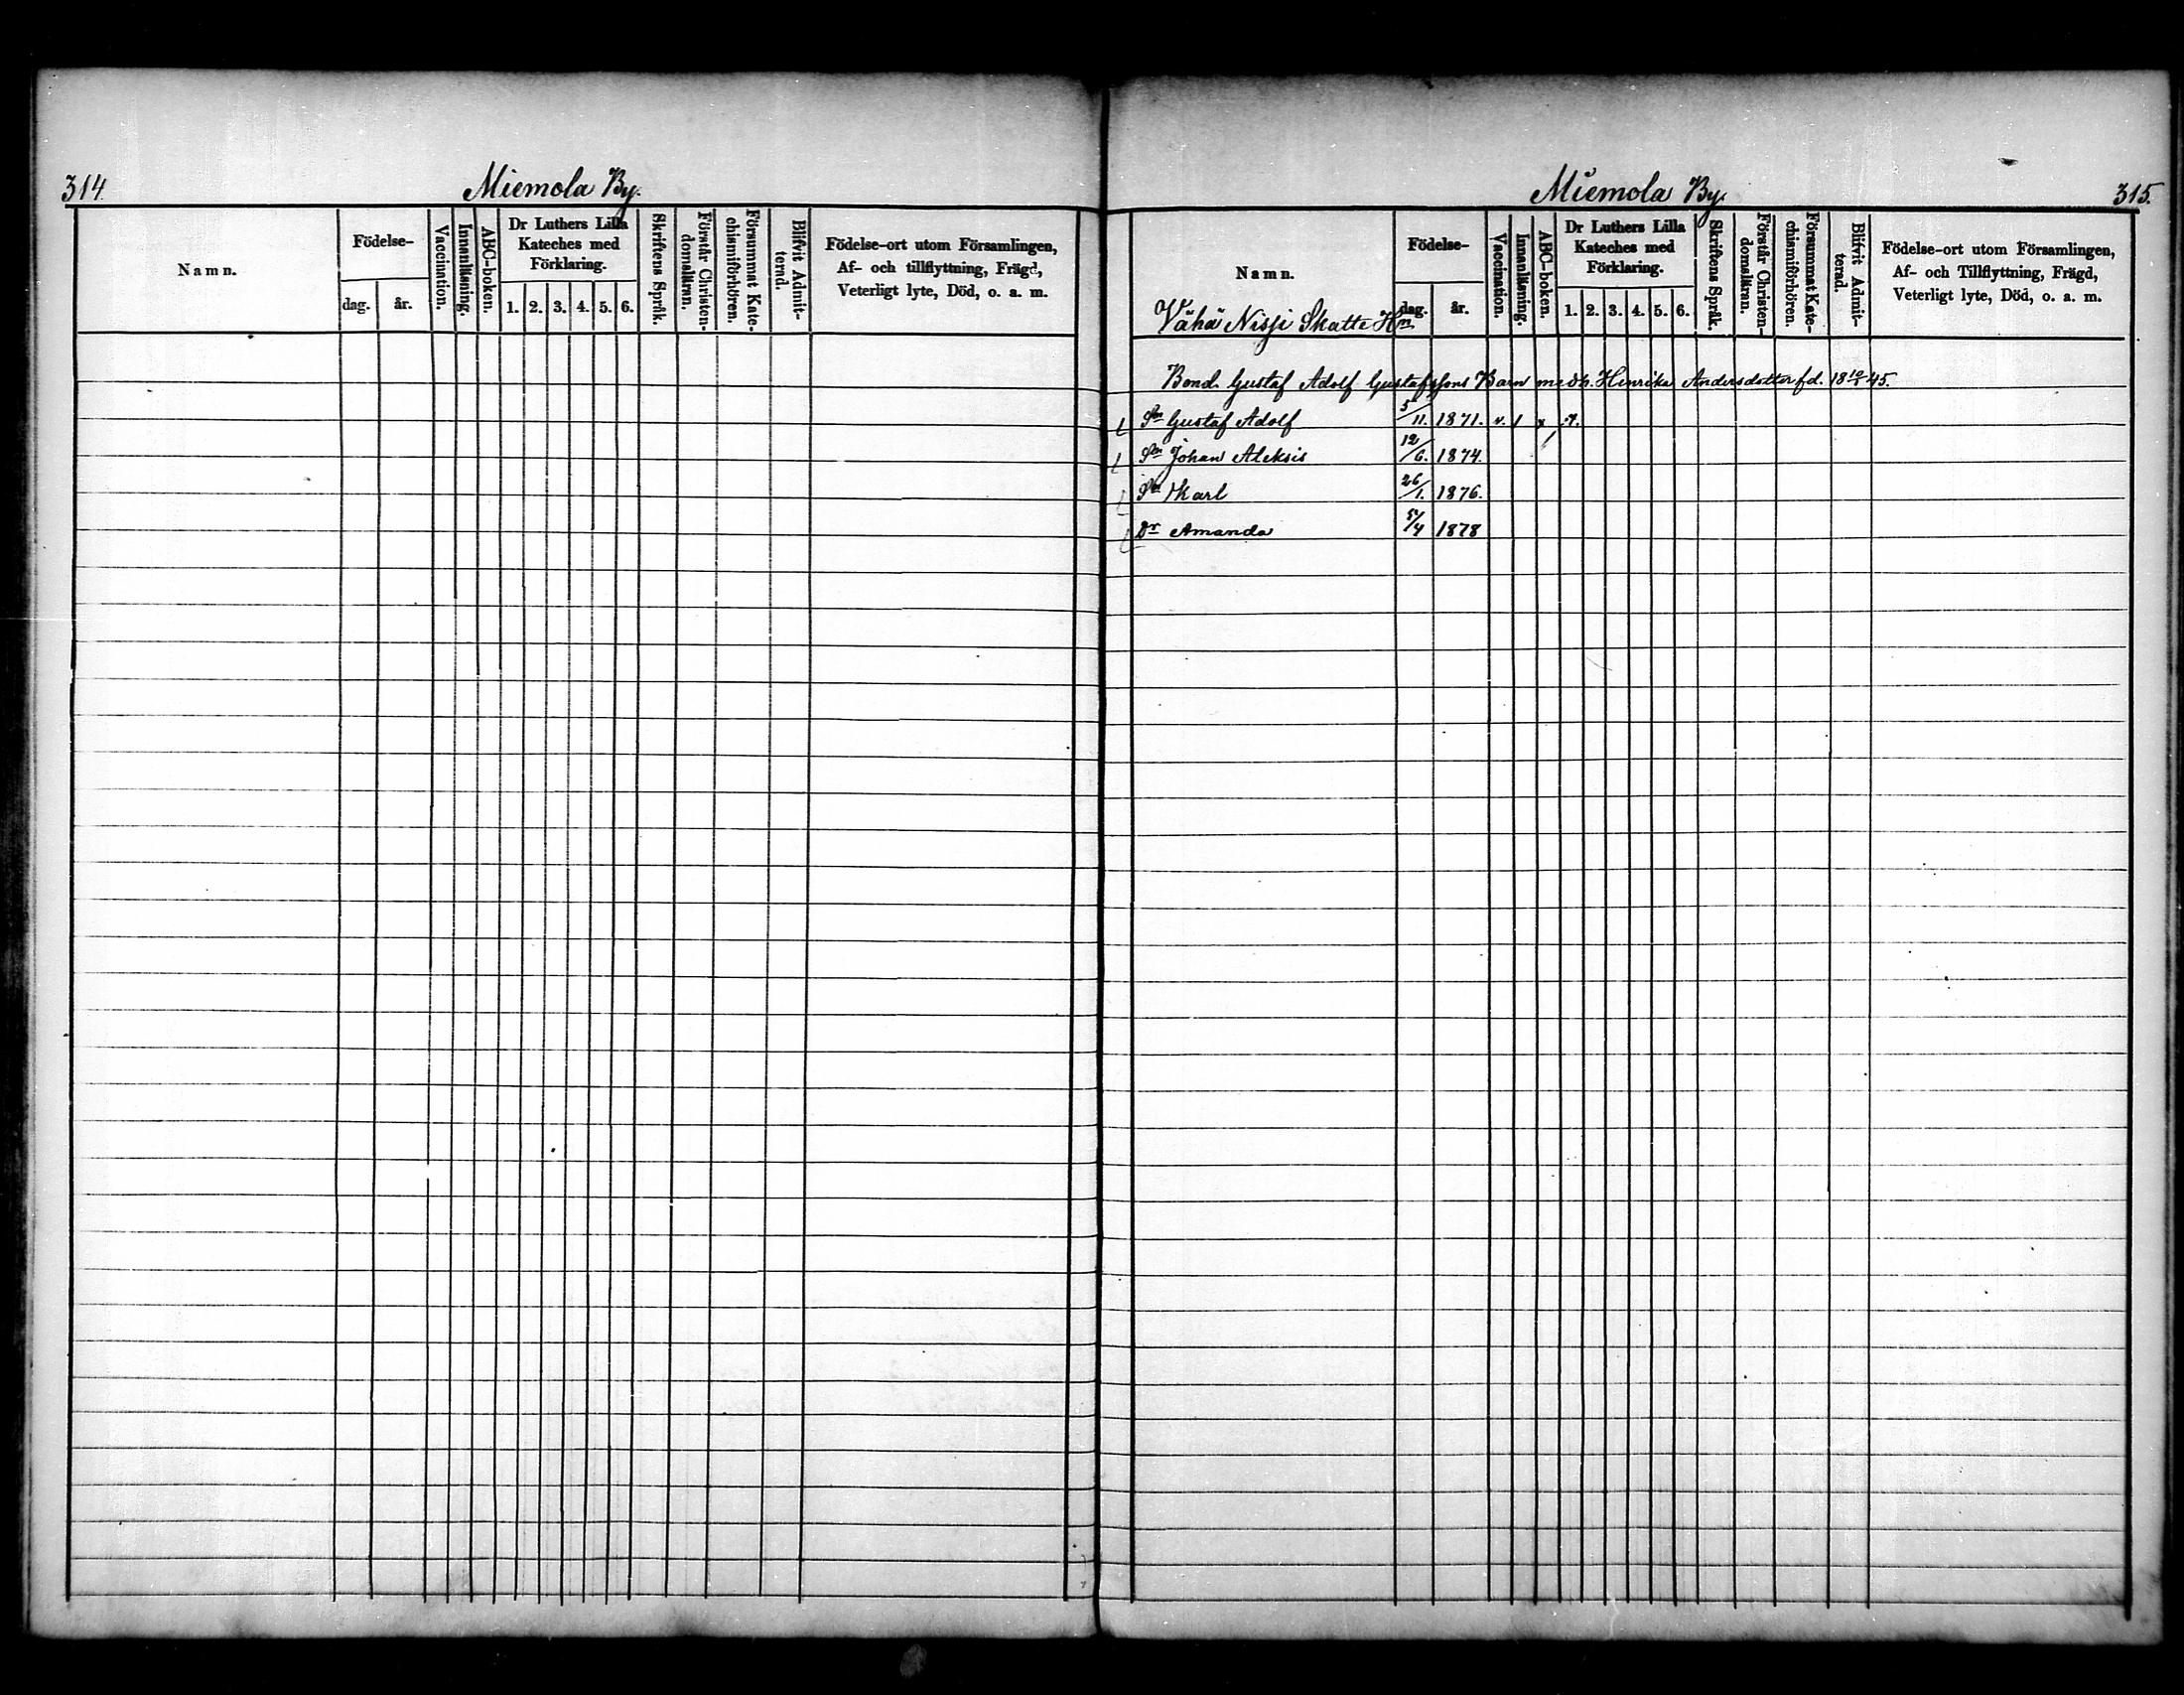 314.
Miemola By.
Namn.
Födelse-
dag.
år.
Vaccination.
Innanläsning.
ABC-boken.
Dr Luthers Lilla
Kateches med
Förklaring.
1. 2. 3. 4. 5. 6.
Skriftens Språk.
Förstår Christen-
domsläran.
Försummat Kate-
chismiförhören.
Blifvit Admit-
terad.
Födelse-ort utom Församlingen,
Af- och tillflyttning, Frägd,
Veterligt lyte, Död, o. a. m.
Miemola By.
315.
Namn.
Vähä Nissi Skatte Hn
Födelse-
dag.
år.
Vaccination.
Innanläsning.
ABC-boken.
Dr Luthers Lilla
Kateches med
Förklaring.
1. 2. 3. 4. 5. 6.
Skriftens Språk.
Förstår Christen-
domsläran.
Försummat Kate-
chismiförhören.
Blifvit Admit-
terad.
Födelse-ort utom Församlingen,
Af- och Tillflyttning, Frägd,
Veterligt lyte, Död, o. a. m.
Bond. Gustaf Adolf Gustafssons Barn med h. Henrika Andersdotter fd. 18 45.
Sn Gustaf Adolf 5/11. 1871. v. 1 x
Sn Johan Aleksis 12/6. 1874.
Sn Karl 26/1. 1876.
Dr Amanda 5/4 1878